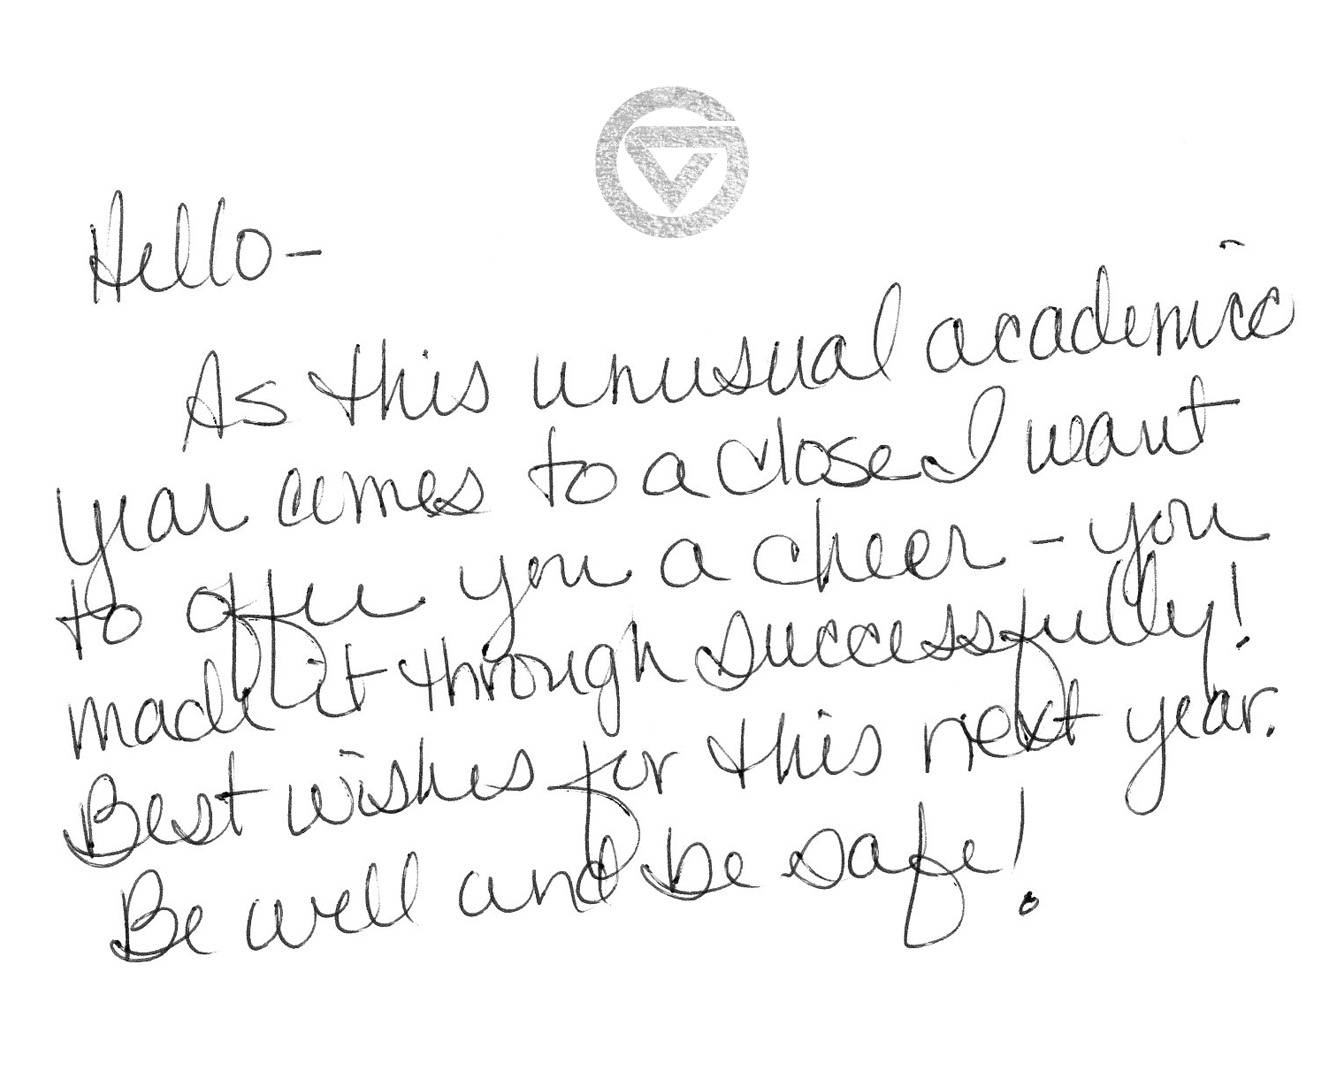 Hello-
As this unusual academic
year comes to a close I want
to offer you a cheer - you
made it through successfully!
Best wishes for this next year.
Be well and be safe!